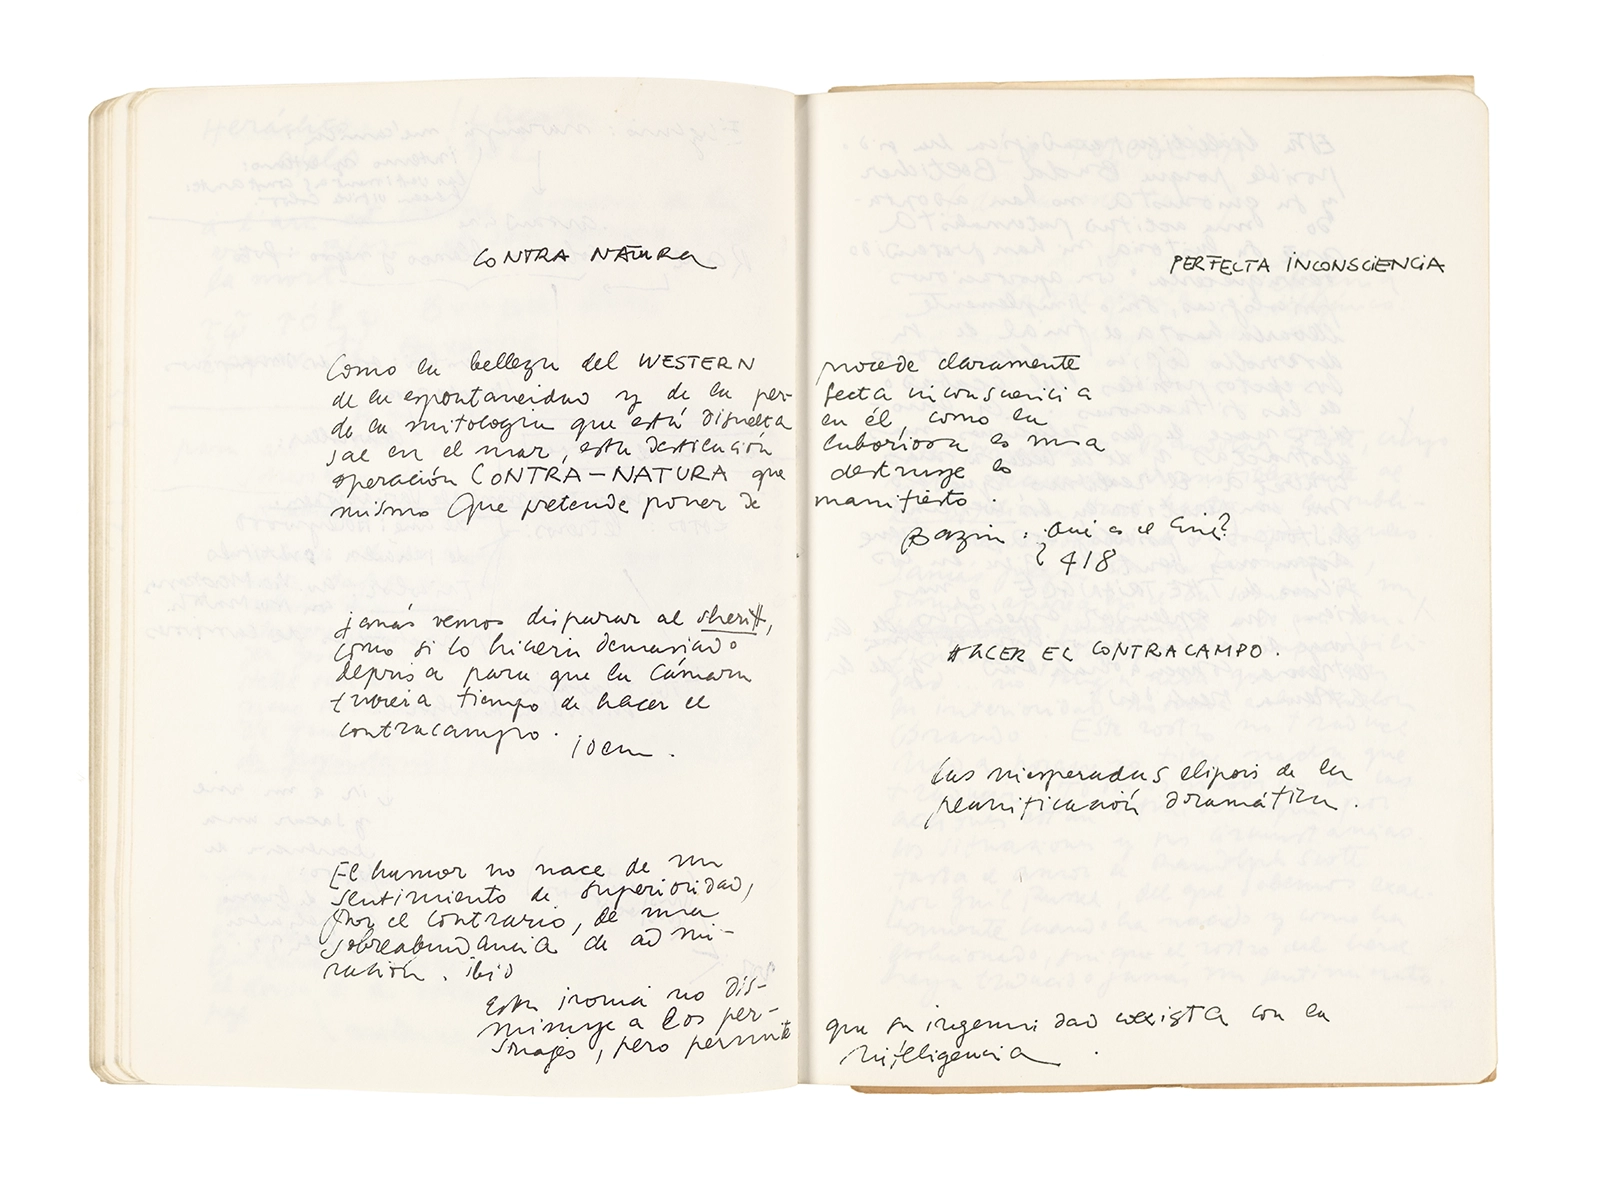 CONTRA NATURA
PERFECTA INCONSCIENCIA
Como la belleza del WESTERN procede claramente
de la espontaneidad y de la per- fecta inconsciencia
de la mitología que está disuelta en él, como la
sal en el mar, esta destilación laboriosa es una
operación CONTRA-NATURA que destruye lo
mismo que pretende poner de manifiesto.
Bazin: ¿Qué es el Cine?
418
jamás vemos disparar al sheriff,
como si lo hiciera demasiado
deprisa para que la cámara
tuviera tiempo de hacer el
contracampo.
idem.
HACER EL CONTRACAMPO.
Las inesperadas elipsis de la
planificación dramática.
El humor no nace de un
sentimiento de superioridad,
por el contrario, de una
sobreabundancia de admi-
ración. ibid
Esta ironía no dis-
minuye a los per-
sonajes, pero permite que su ingenuidad coexista con la
inteligencia.